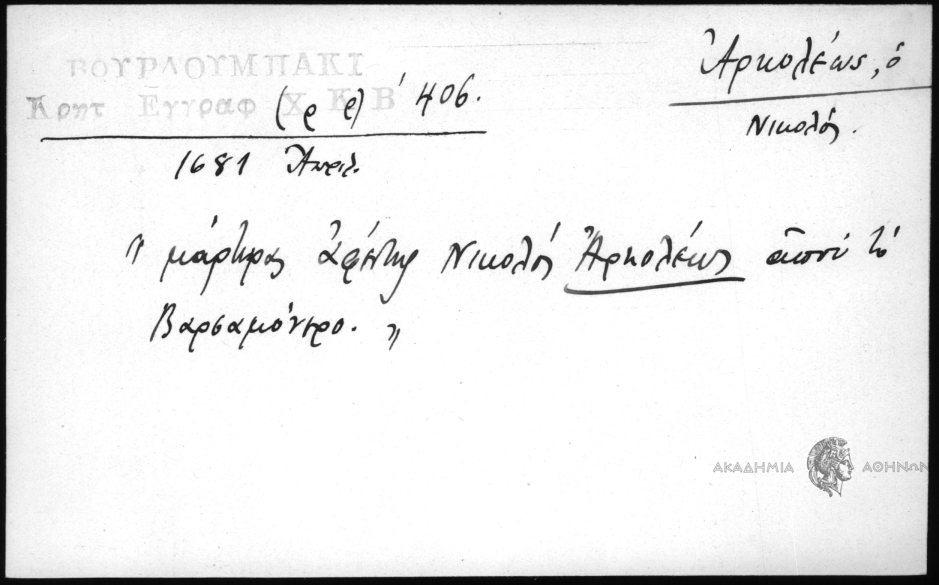 ΒΟΥΡΛΟΥΜΠΑΚΙ
Κρητ Εγγραφ Χ Κ Β
(ρ ρ) 406.
Ἀρκολέως, ὁ
Νικολός.
1681 Ἀπριλ.
" μάρτηρας ἀφέντης Νικολός Ἀρκολέως ἀπού τό
Βαρσαμόνερο. "
ΑΚΑΔΗΜΙΑ ΑΘΗΝΩΝ